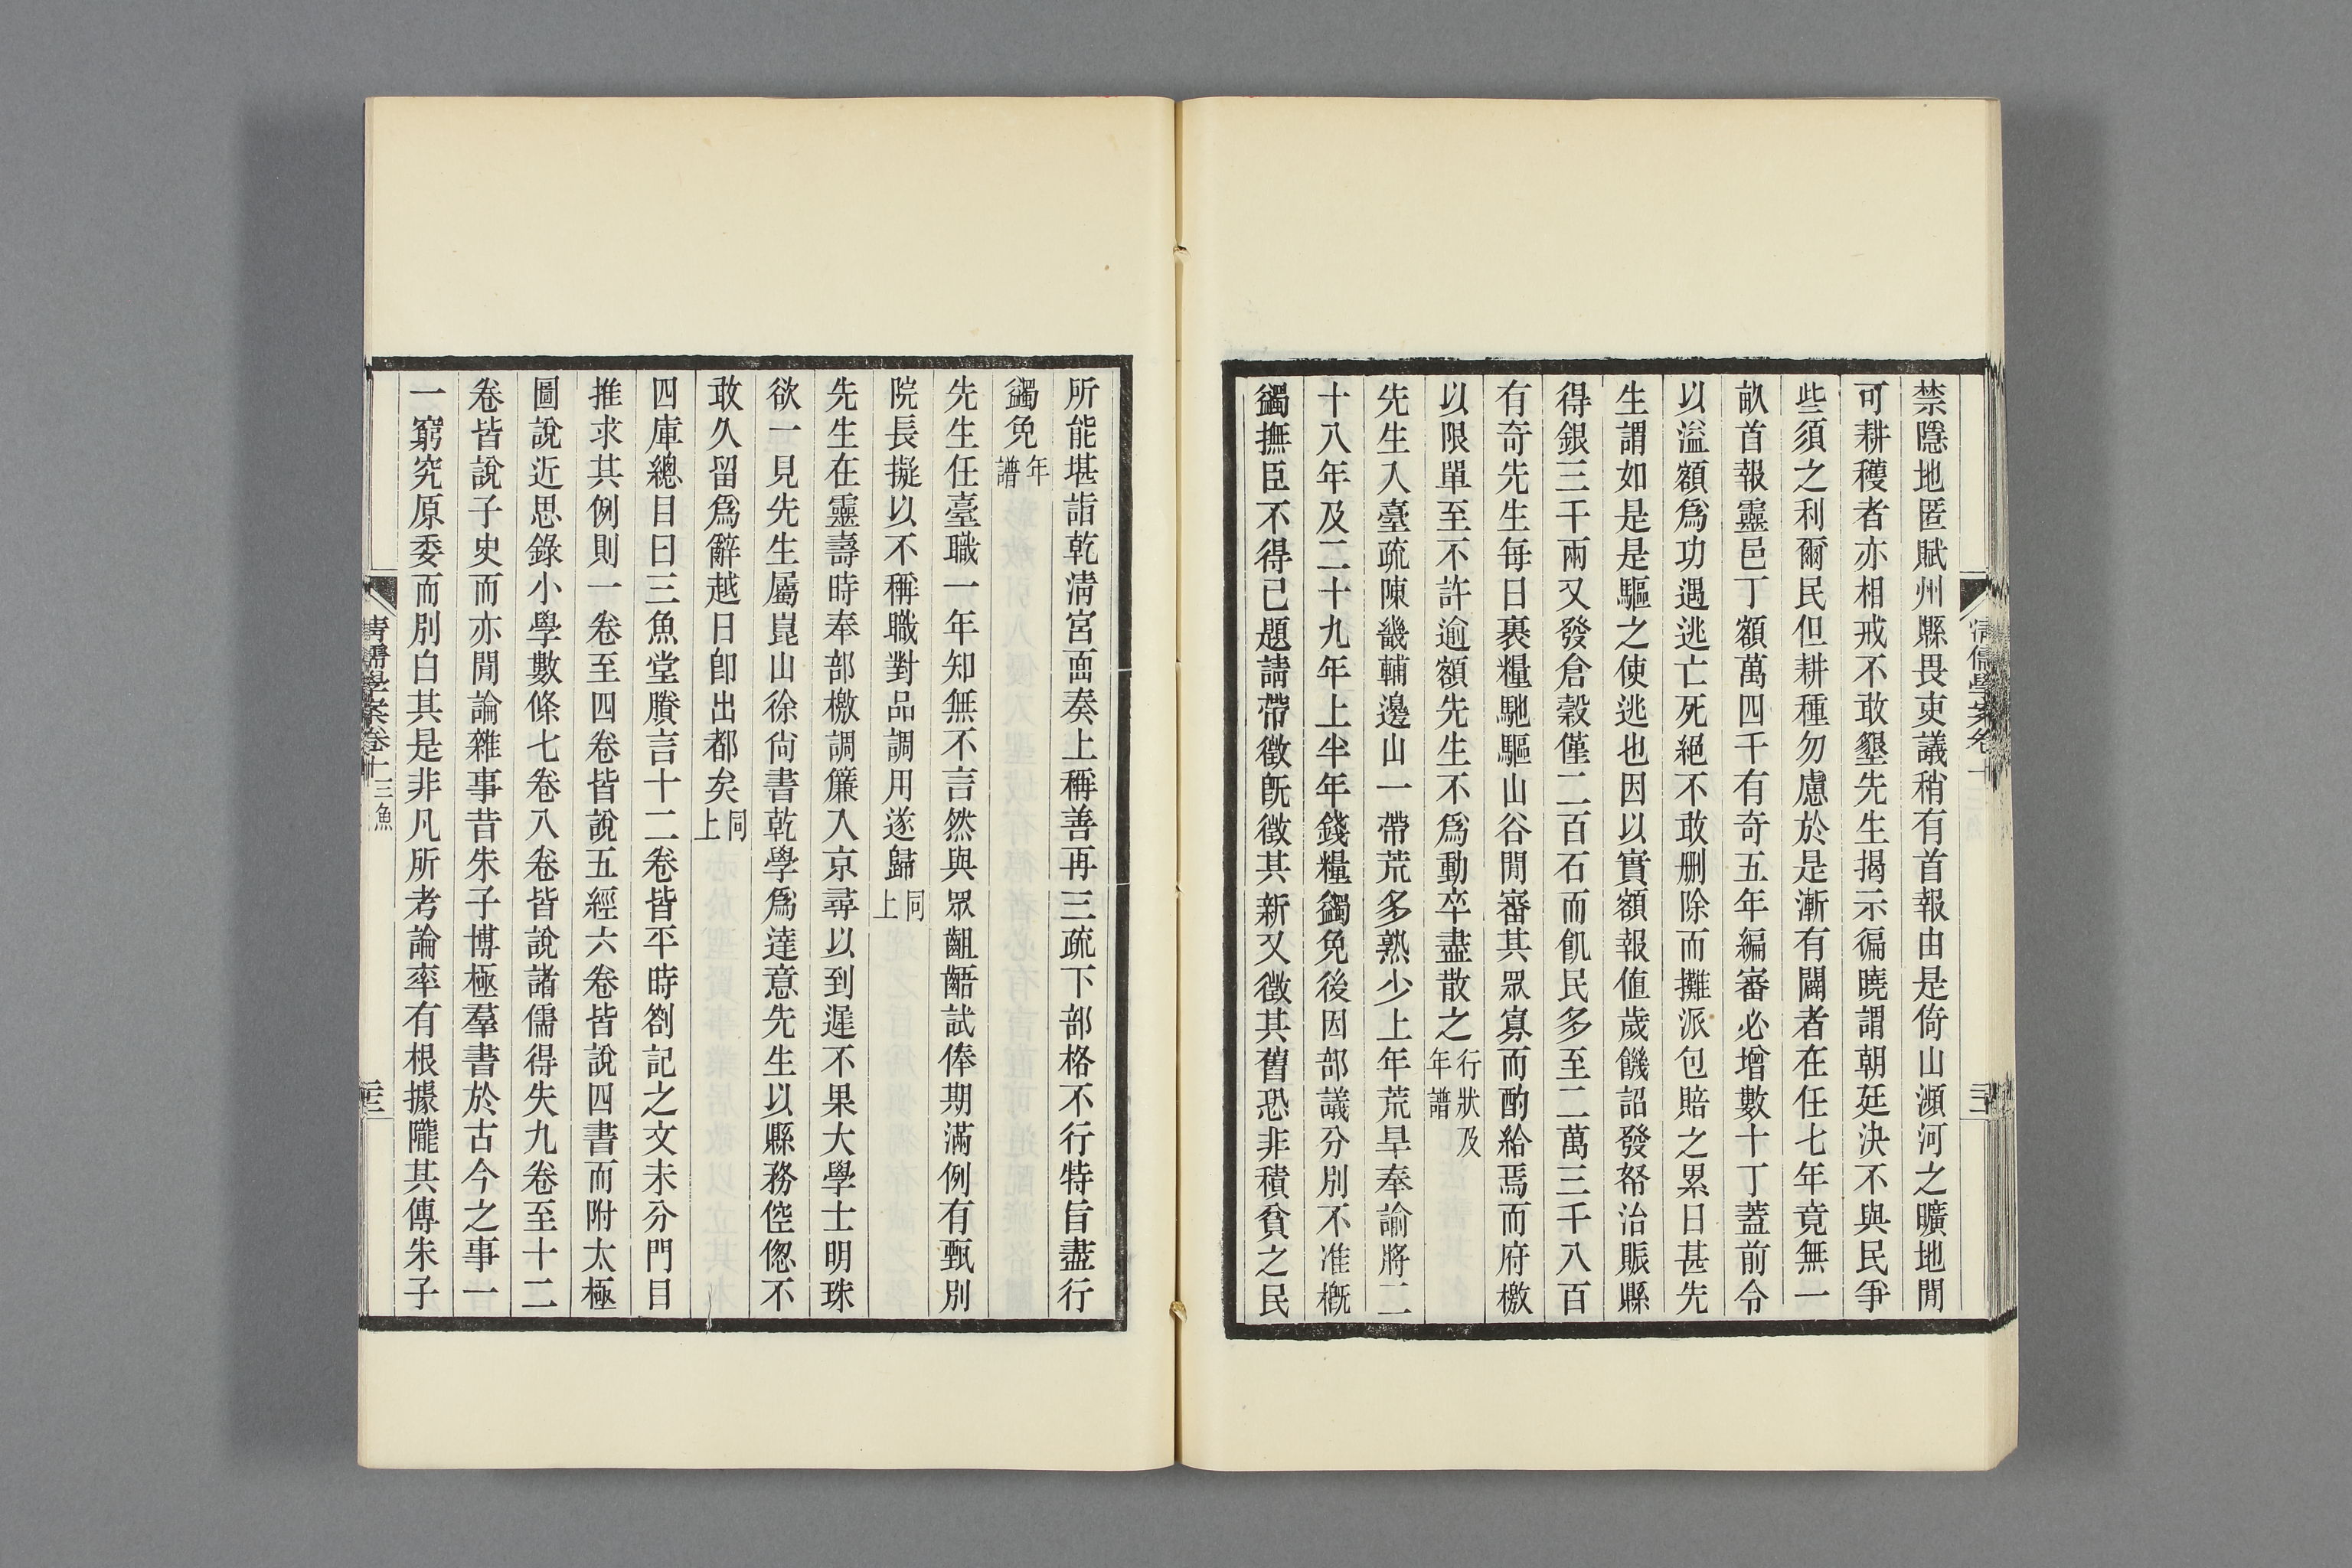 禁隱地匿賦州縣畏吏議稍有首報由是倚山瀕河之曠地閒
可耕穫者亦相戒不敢墾先生揭示徧曉謂朝廷決不與民爭
些須之利爾民但耕種勿慮於是漸有闢者在任七年竟無一
畝首報靈邑丁額萬四千有奇五年編審必增數十丁蓋前令
以溢額爲功遇逃亡死絕不敢刪除而攤派包賠之累日甚先
生謂如是是驅之使逃也因以實額報値歲饑詔發帑治賑縣
得銀三千兩又發倉穀僅二百石而飢民多至二萬三千八百
有奇先生每日裹糧馳驅山谷閒審其眾寡而酌給焉而府檄
以限單至不許逾額先生不爲動卒盡散之行狀及年譜
先生入臺疏陳畿輔邊山一帶荒多熟少上年荒旱奉諭將二
十八年及二十九年上半年錢糧蠲免後因部議分別不准槪
蠲撫臣不得已題請帶徵旣徵其新又徵其舊恐非積貧之民
所能堪詣乾淸宮面奏上稱善再三疏下部格不行特旨盡行
蠲免年譜
先生任臺職一年知無不言然與眾齟齬試俸期滿例有甄別
院長擬以不稱職對品調用遂歸同上
先生在靈壽時奉部檄調簾入京尋以到遲不果大學士明珠
欲一見先生屬崑山徐尙書乾學爲達意先生以縣務倥偬不
敢久留爲辭越日卽出都矣同上
四庫總目曰三魚堂賸言十二卷皆平時劄記之文未分門目
推求其例則一卷至四卷皆說五經六卷皆說四書而附太極
圖說近思錄小學數條七卷八卷皆說諸儒得失九卷至十二
卷皆說子史而亦閒論雜事昔朱子博極羣書於古今之事一
一窮究原委而別白其是非凡所考論率有根據隴其傳朱子
淸儒學案卷十 三魚